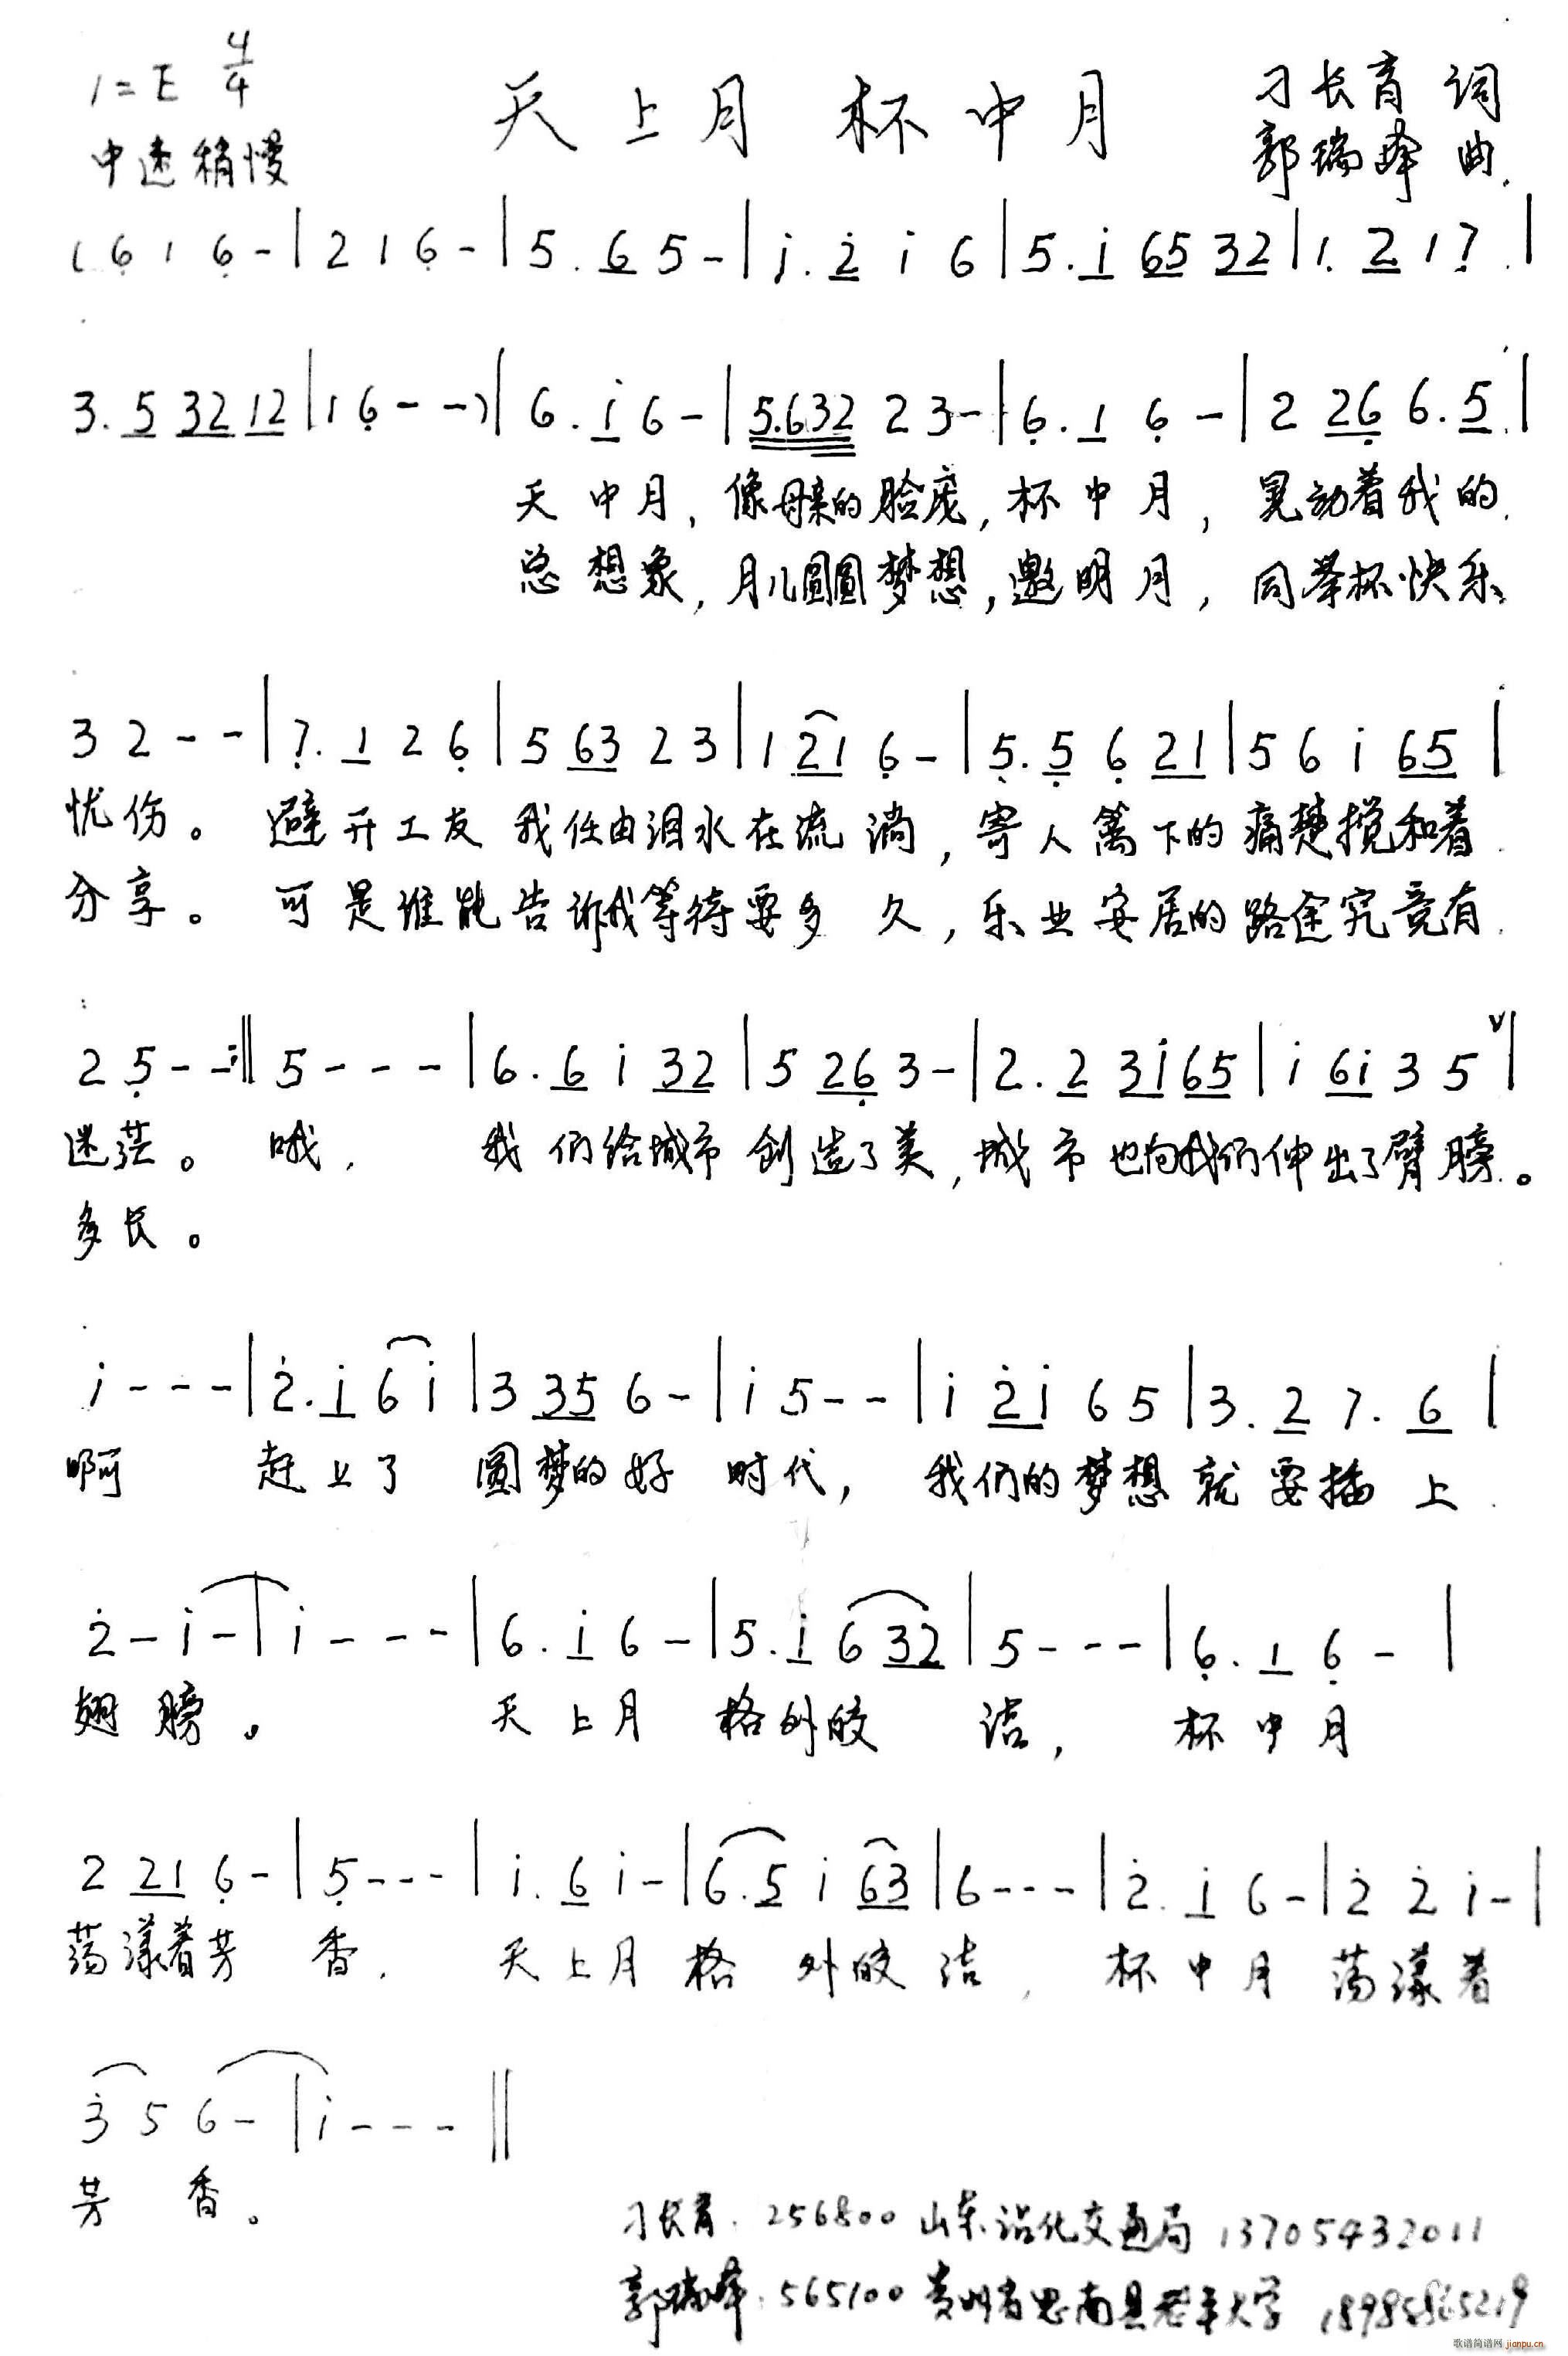 1=E 4/4 天上月 杯中月 刁长育 词
中速稍慢 郭瑞峰 曲
( 6̣ 1 6̣ - | 2 1 6̣ - | 5. 6 5 - | i. 2̇ i 6 | 5. i 65 32 | 1. 2 1 7̣. |
3. 5 32 12 | 1 6̣ - - ) | 6. i 6 - | 5.632 2 3 - | 6̣. 1 6̣ - | 2 26̣ 6. 5 |
天中月, 像母亲的脸庞, 杯中月, 晃动着我的
总想象, 月儿圆圆梦想, 邀明月, 同举杯快乐
3 2 - - | 7̣. 1 2 6̣ | 5 63 2 3 | 1 21 6̣ - | 5̣. 5̣ 6̣ 21 | 5 6 i 65 |
忧伤。 避开工友 我任由泪水在流淌, 寄人篱下的痛楚搅和着
分享。 可是谁能告诉我等待要多久, 乐业安居的路途究竟有
2 5̣ - - :‖ 5 - - - | 6. 6 i 32 | 5 26̣ 3 - | 2. 2 3i 65 | i 6i 3 5 ∨ |
迷茫。 哦, 我们给城市创造了美, 城市也向我们伸出了臂膀。
多长。
i - - - | 2̇. i 6 i | 3 35 6 - | i 5 - - | i 2̇i 6 5 | 3. 2 7. 6 |
啊 赶上了 圆梦的好时代, 我们的梦想就要插上
2̇ - i - | i - - - | 6. i 6 - | 5. i 6 32 | 5 - - - | 6̣. 1 6̣ - |
翅膀。 天上月 格外皎洁, 杯中月
2 21 6̣ - | 5̣ - - - | i. 6 i - | 6. 5 i 63 | 6 - - - | 2̇. i 6 - | 2̇ 2̇ i - |
荡漾着芳香. 天上月格外皎洁, 杯中月荡漾着
3̇ 5 6 - | i - - - ‖
芳香。
刁长育. 256800 山东沾化交通局 13705432011
郭瑞峰. 565100 贵州省思南县老年大学
歌谱简谱网 jianpu.cn